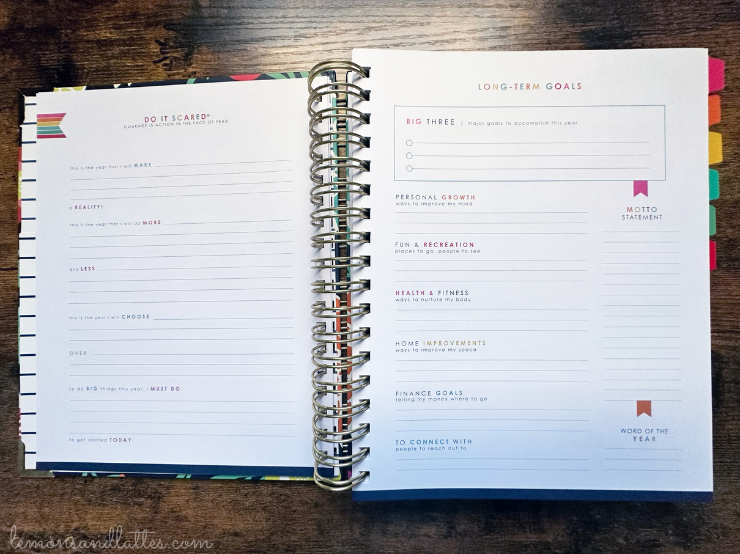 DO IT SCARED®
COURAGE IS ACTION IN THE FACE OF FEAR
this is the year that I will MAKE
a REALITY!
this is the year that I will do MORE
and LESS
this is the year I will CHOOSE
OVER
to do BIG things this year, I MUST DO
to get started TODAY.
LONG-TERM GOALS
BIG THREE | major goals to accomplish this year
PERSONAL GROWTH
ways to improve my mind
FUN & RECREATION
places to go, people to see
HEALTH & FITNESS
ways to nurture my body
HOME IMPROVEMENTS
ways to improve my space
FINANCE GOALS
telling my money where to go
TO CONNECT WITH
people to reach out to
MOTTO
STATEMENT
WORD OF THE
YEAR
lemonsandlattes.com